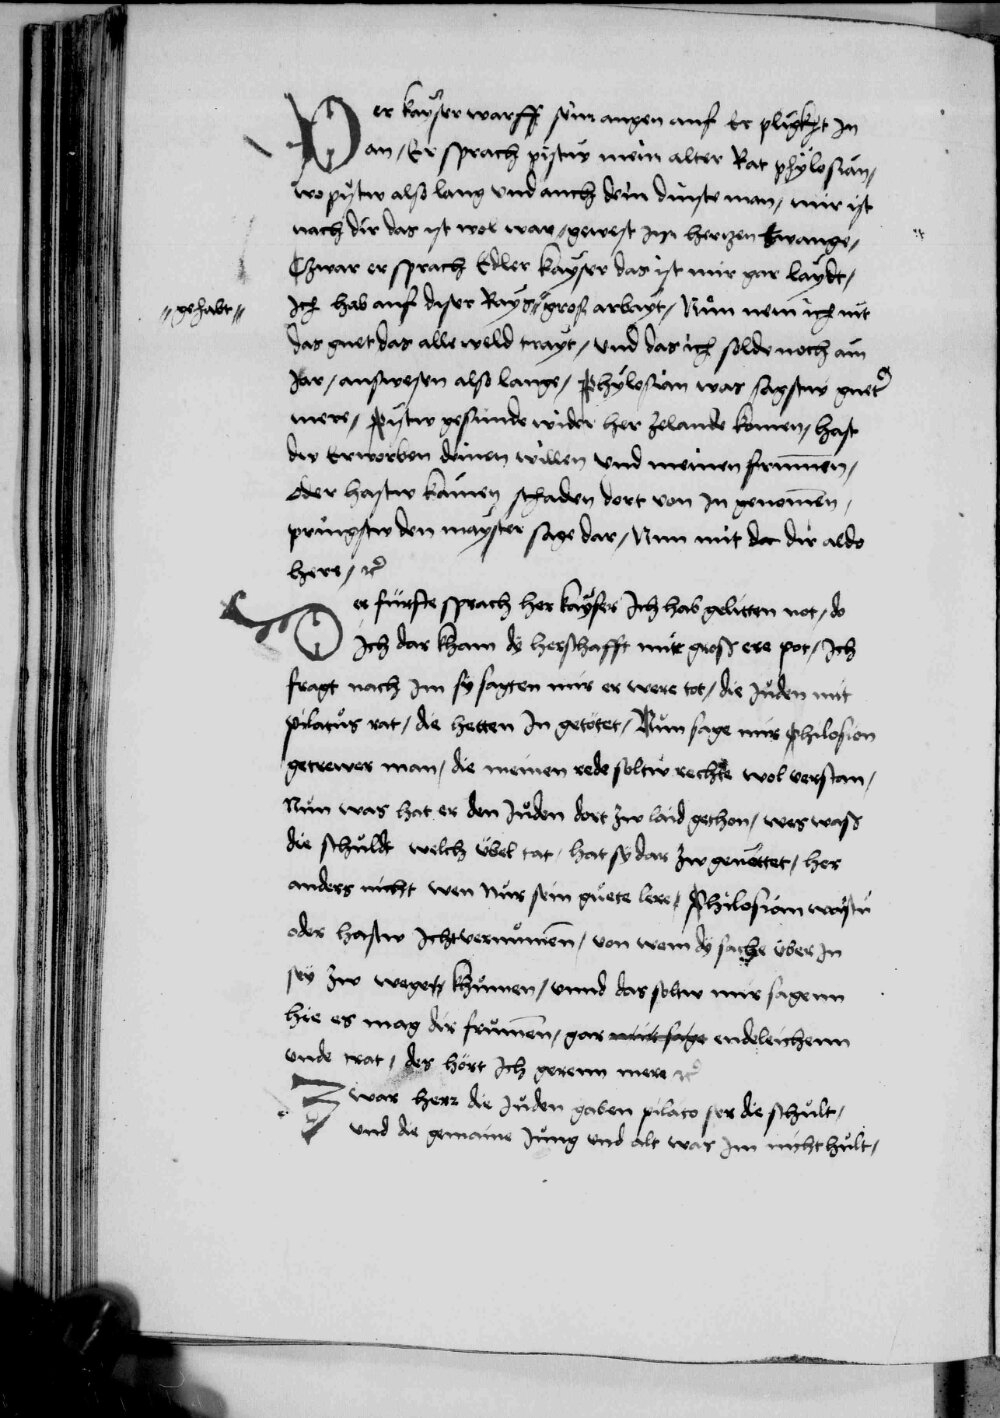 Der kaÿser warff sein augen auf Er plickt In
an / Er sprach pistw mein alter Rat phÿlosian /
wo pistw also lang vnd auch dein dinste man / mir ist
nach dir das ist wol war / gewest Im hertzen zwange /
Zwar er sprach Edler kaÿser das ist mir gar laÿdt /
"gehabt" Ich hab auf diser Rays " groß arbayt / Nun nem ich nit
das guet das alle weld trayt / vnd das ich solde noch ain
Jar / auswesen also lange / Phÿlosian was sagstw gueter
mere / Pistw gesunde wider her zelande komen / hast
dw Erworben deinen willen vnd meinen frummen /
oder hastw kainen schaden dort von In genomen /
pringstw den maÿster sage dar / Nun mit dir aldo
here / rc
Der fürste sprach her kaÿser Ich hab geliten not / do
Ich dar kham dy herschafft mir gross ere pot / Ich
fragt nach Im sÿ sagten mir er were tot / die Juden mit
pilatus rat / die hetten In getötet / Nun sage mir Philosion
getrewer man / die meinen rede soltw rechte wol verstan /
Nun was hat er den Juden dort zw laid gethon / wes wass
die schuldt welch übel tat / hat sÿ dar zw genöttet / her
anders nicht wen nür sein guete lere / Philosian waÿstu
oder hastw Icht vernumen / von wem dÿ sache über In
seÿ zw wegen khumen / vnnd das soltw mir sagenn
hie es mag dir frumen / gar endeleichenn
vnde trat / des hört Ich gerenn mere rc
Zwar herr die Juden gaben pilato ser die schult /
vnd die gemaine Jung vnd alt war Im nicht hult /